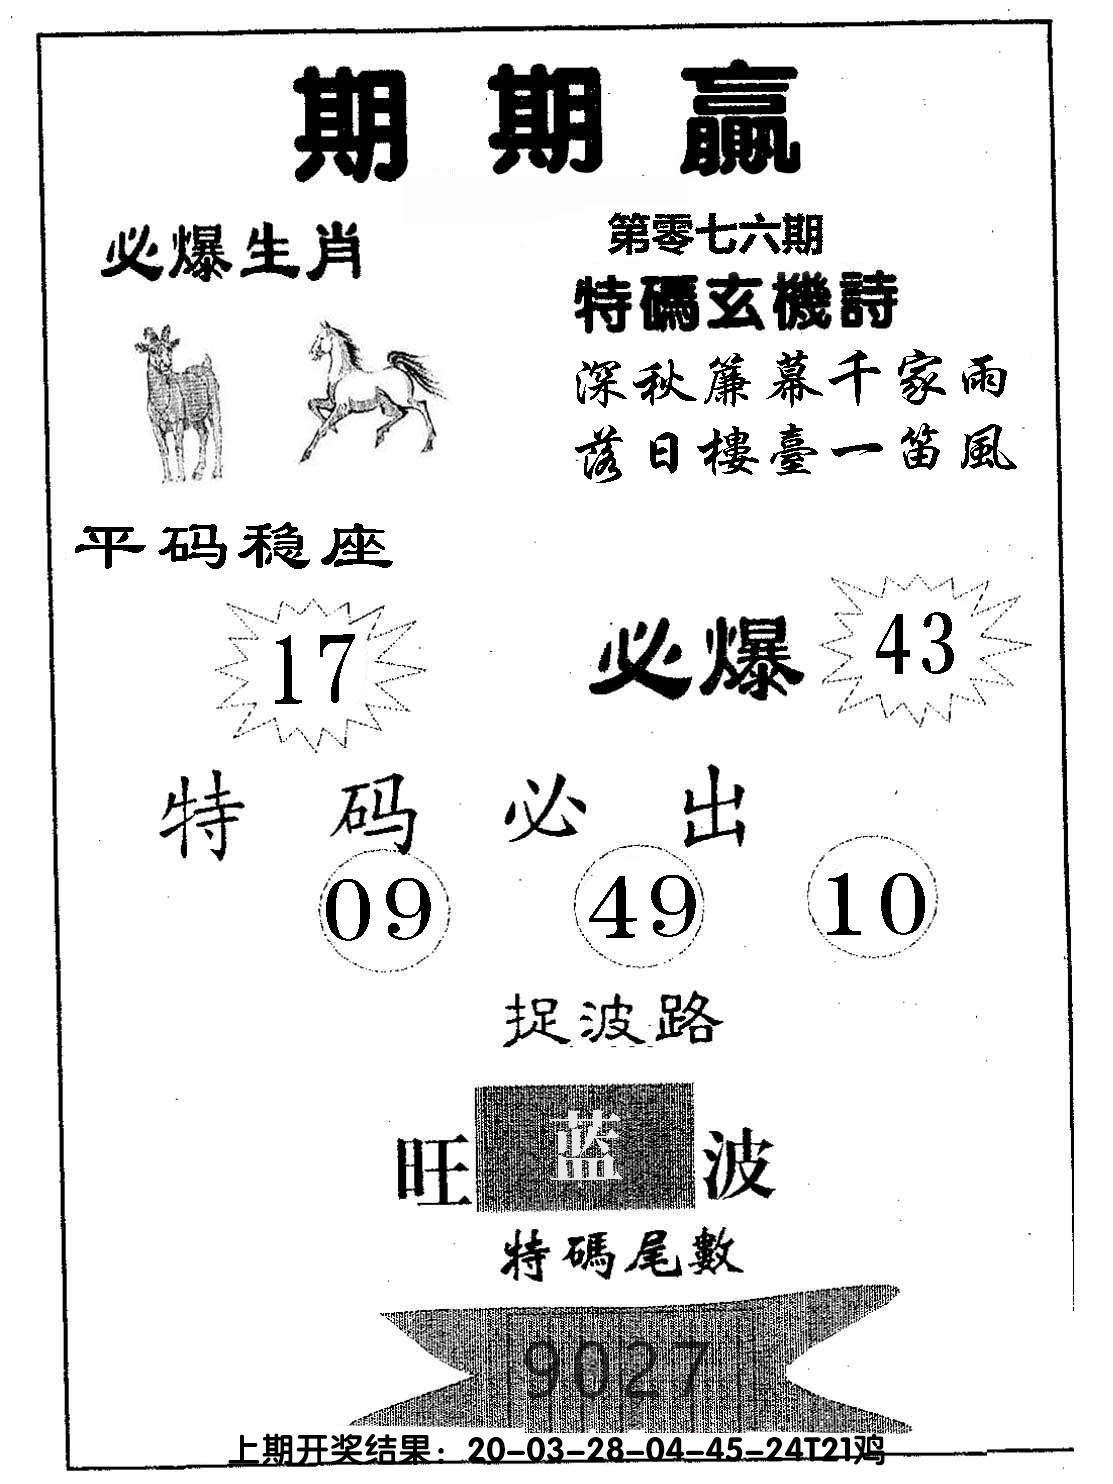 期期赢
必爆生肖
第零七六期
特碼玄機詩
深秋簾幕千家雨
落日樓臺一笛風
平码稳座
17
必爆 43
特码必出
09 49 10
捉波路
旺 蓝 波
特碼尾數
9027
上期开奖结果：20-03-28-04-45-24T21鸡